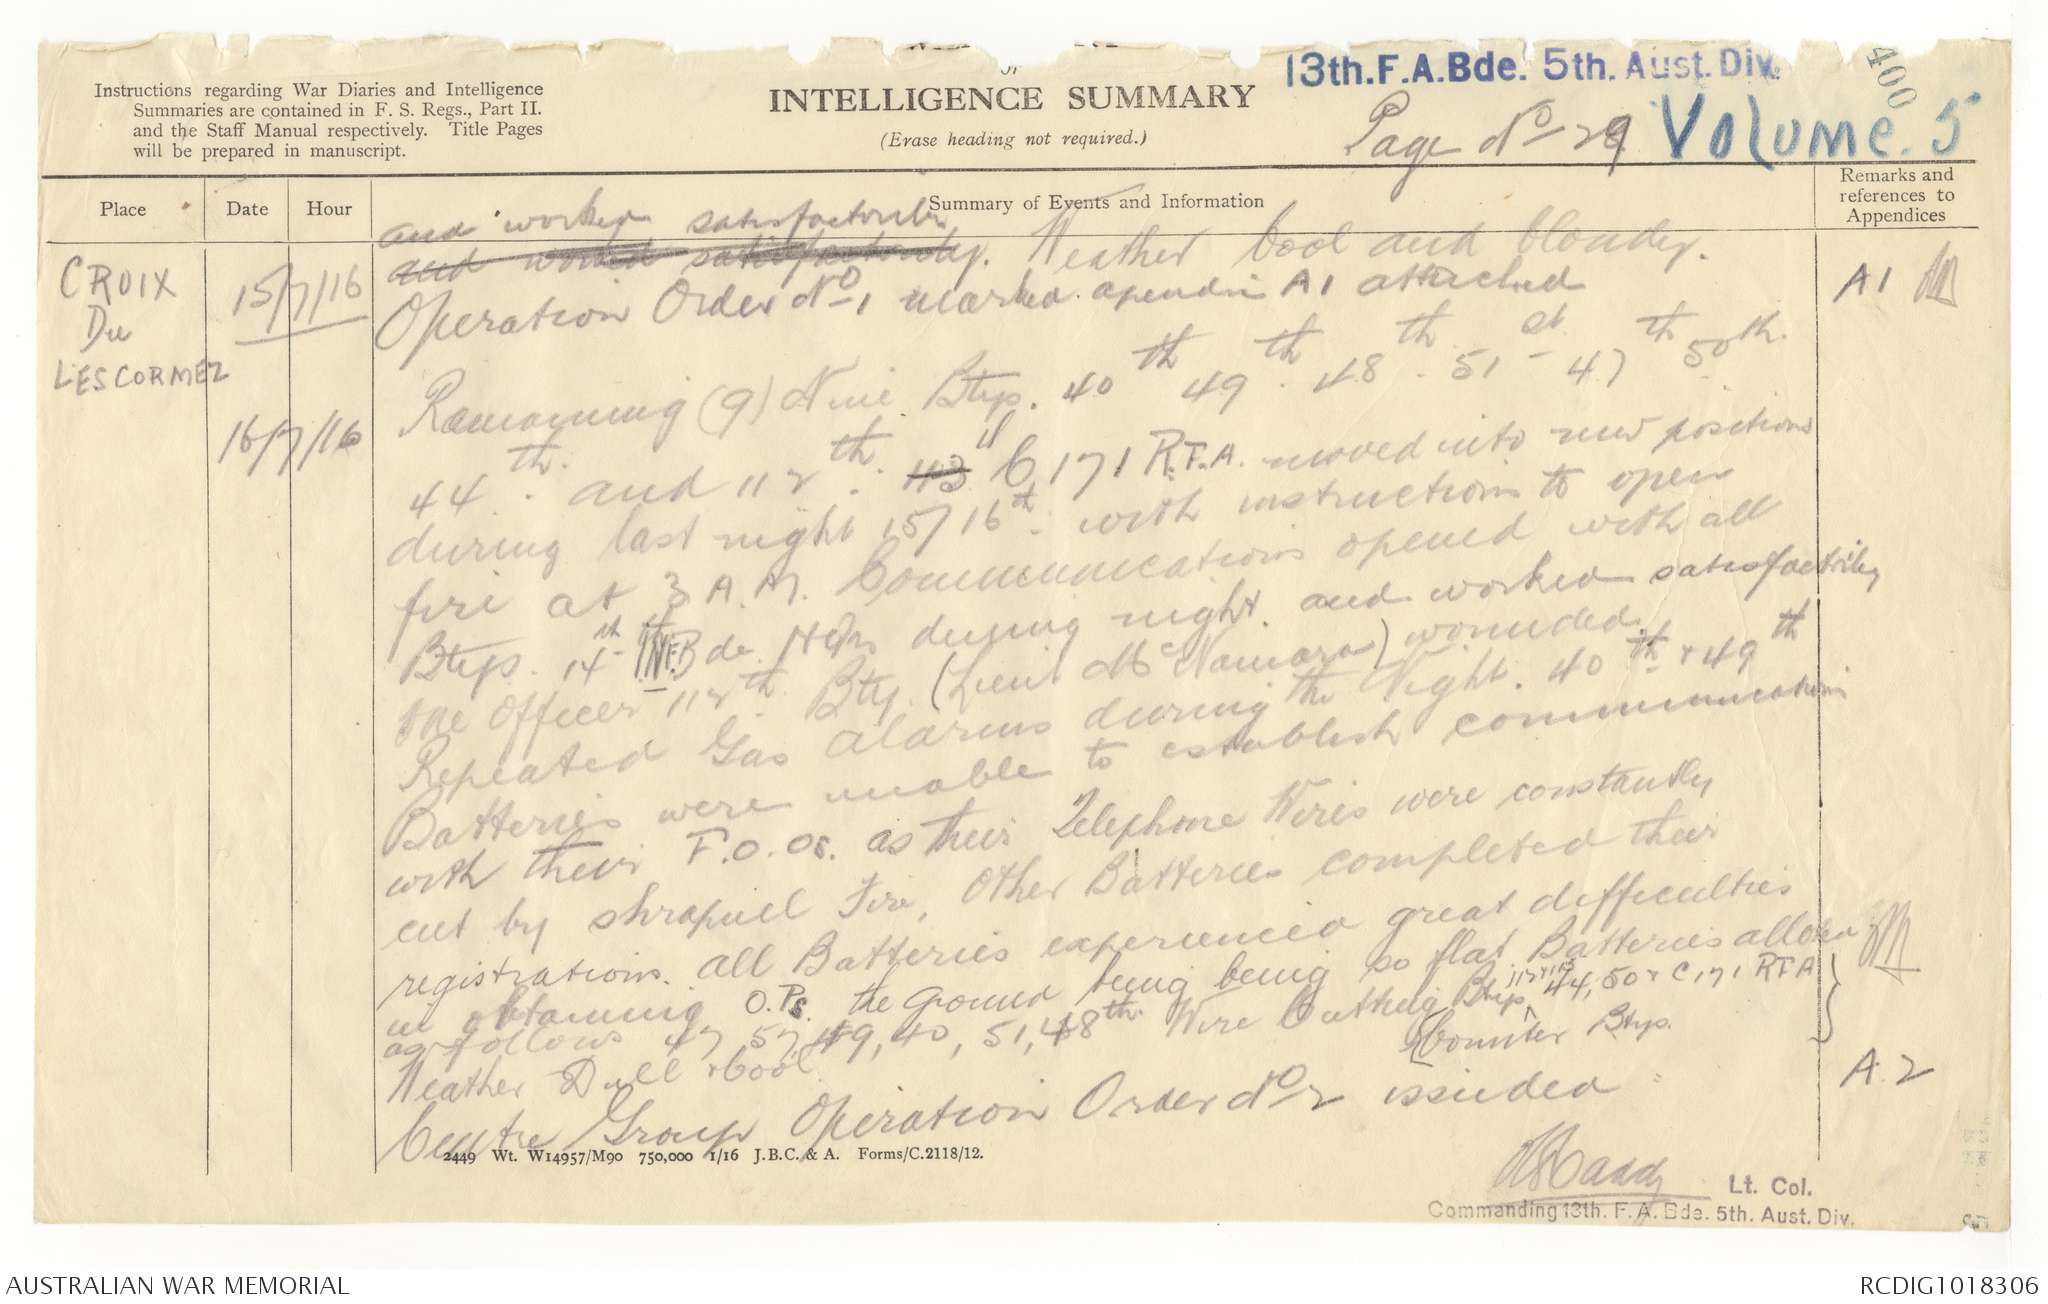 13th. F.A. Bde. 5th. Aust. Div.
400
Instructions regarding War Diaries and Intelligence
Summaries are contained in F. S. Regs., Part II.
and the Staff Manual respectively. Title Pages
will be prepared in manuscript.
or
INTELLIGENCE SUMMARY
(Erase heading not required.)
Page No 29 Volume. 5
Place
Date
Hour
Summary of Events and Information
Remarks and
references to
Appendices
CROIX
Du
LESCORNEZ
15/7/16
and worked satisfactorily
and worked satisfactorily. Weather Cool and Cloudy.
Operation Order No 1 marked apendix A1 attached
A1
16/7/16
Remaining (9) Nine Btys. 40th 49th. 48th. 51st 47th 50th.
44th. and 112th. 113 C 171 R.F.A. moved into new positions
during last night 15/16th with instructions to open
fire at 3 A.M. Communications opened with all
Btys. 14th INF. Bde. Hqrs during night. and worked satisfactorily
one Officer 112th. Bty. (Lieut McNamara) wounded.
Repeated Gas Alarms during the Night. 40th & 49th
Batteries were unable to establish communications
with their F.O.Os. as their Telephone Wires were constantly
cut by shrapnel Fire, Other Batteries completed their
registrations. All Batteries experienced great difficulties
in obtaining O.Ps. the ground being being so flat Batteries allotted
as follows 47, 57, 49, 40, 51, 48th. Wire Cutting Btys, 112 & 113 44, 50 & C 171 RFA
Counter Btys.
Weather Dull & Cool.
Centre Group Operation Order No 2 issued
A.2
2449 Wt. W14957/M90 750,000 1/16 J.B.C. & A. Forms/C.2118/12.
Caddy
Lt. Col.
Commanding 13th. F. A. Bde. 5th. Aust. Div.
AUSTRALIAN WAR MEMORIAL
RCDIG1018306